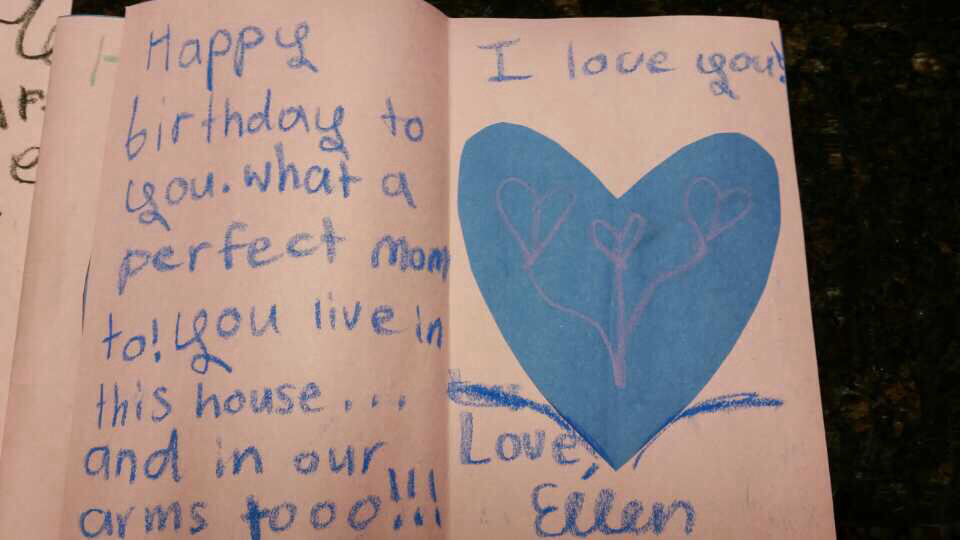 Happy
birthday to
you. what a
perfect Mom
to! you live in
this house...
and in our
arms tooo!!!
I love you!
Love,
Ellen